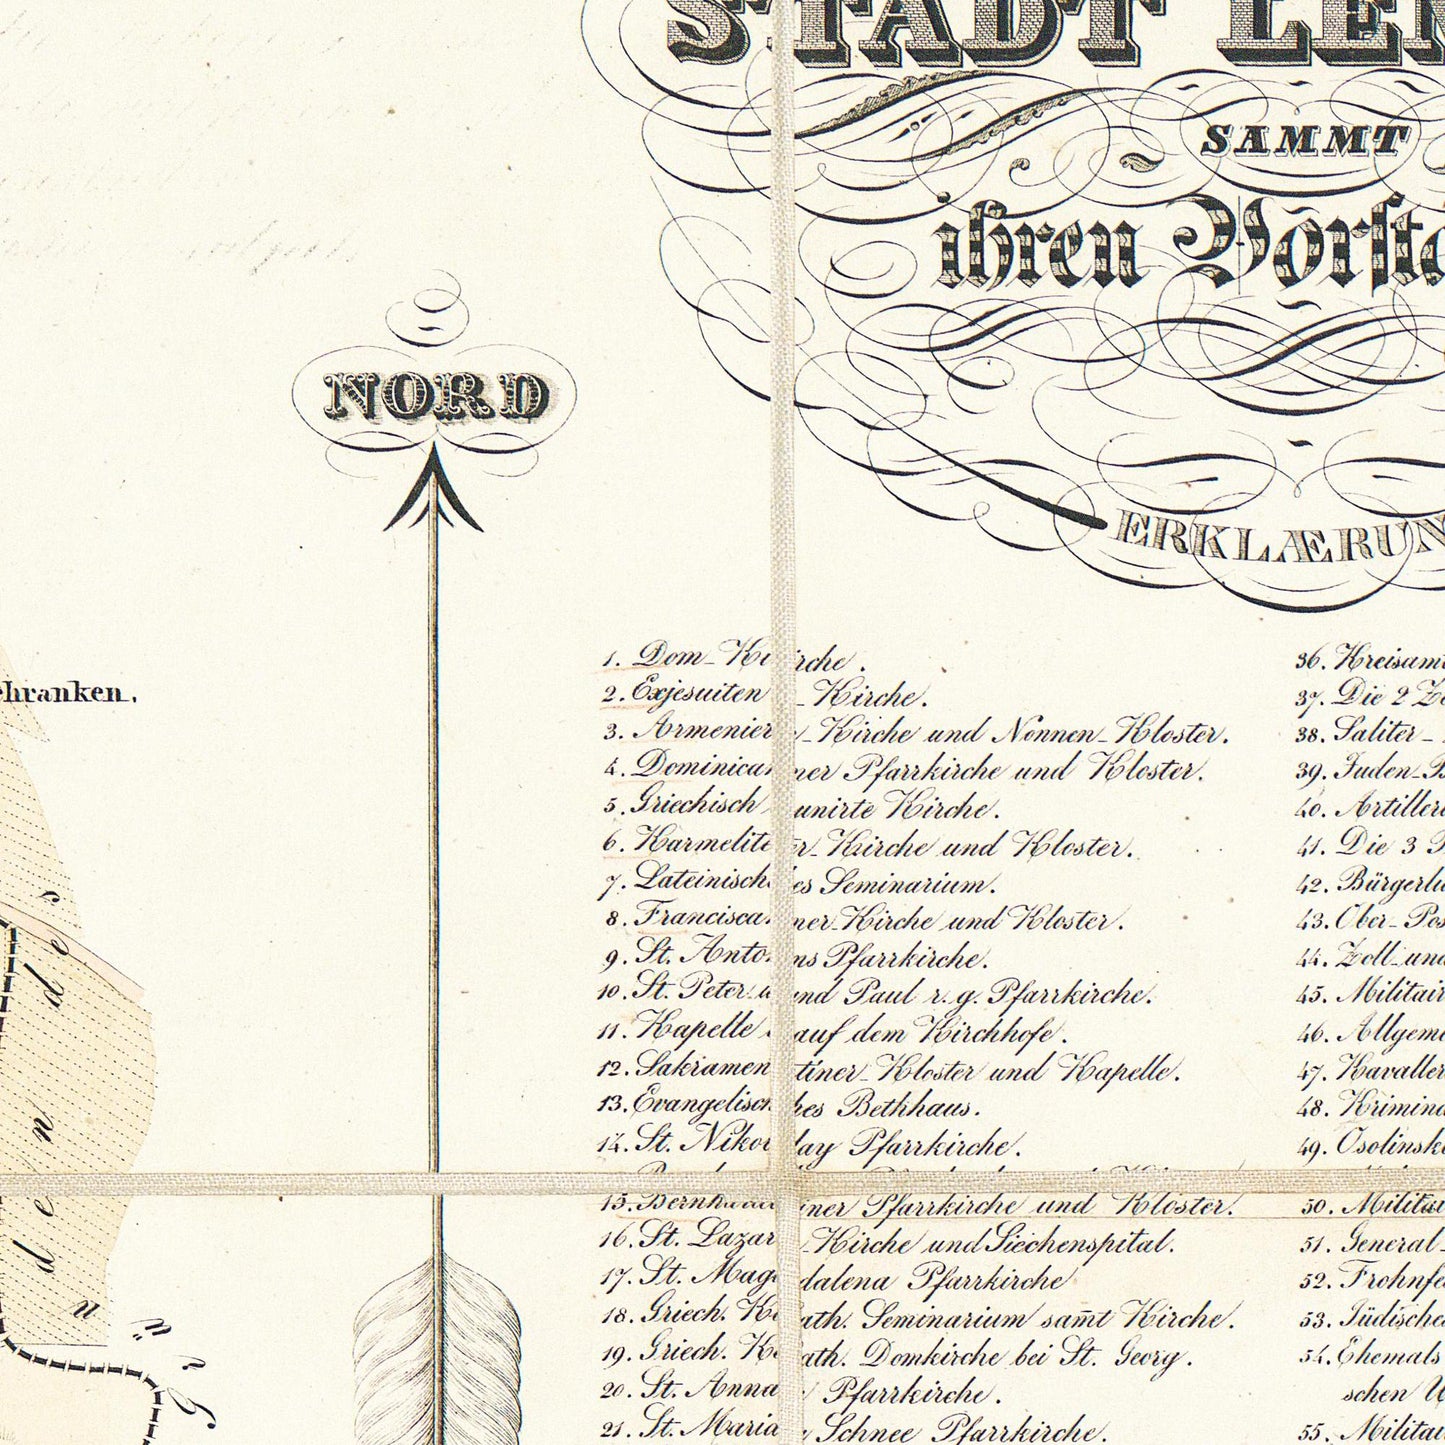 STADT LEM
SAMMT
ihren Vorstä
NORD
ERKLÆRUN
chranken.
1. Dom-Kirche.
2. Exjesuiten-Kirche.
3. Armenier-Kirche und Nonnen-Kloster.
4. Dominicaner Pfarrkirche und Kloster.
5. Griechisch unirte Kirche.
6. Karmeliter-Kirche und Kloster.
7. Lateinisches Seminarium.
8. Franciscaner-Kirche und Kloster.
9. St. Antons Pfarrkirche.
10. St. Peter und Paul r. g. Pfarrkirche.
11. Kapelle auf dem Kirchhofe.
12. Sakramentiner-Kloster und Kapelle.
13. Evangelisches Bethhaus.
14. St. Nikolay Pfarrkirche.
15. Bernhardiner Pfarrkirche und Kloster.
16. St. Lazar-Kirche und Siechenspital.
17. St. Magdalena Pfarrkirche
18. Griech. Kath. Seminarium sam̄t Kirche.
19. Griech. Kath. Domkirche bei St. Georg.
20. St. Anna Pfarrkirche.
21. St. Maria Schnee Pfarrkirche.
36. Kreisamt
37. Die 2
38. Saliter-
39. Juden-
40. Artillerie
41. Die 3
42. Bürger
43. Ober-Pos
44. Zoll-und
45. Militair
46. Allgeme
47. Kavaller
48. Krimina
49. Osolinski
50. Militai
51. General-
52. Frohnfe
53. Jüdisches
54. Ehemals
schen
55. Militai